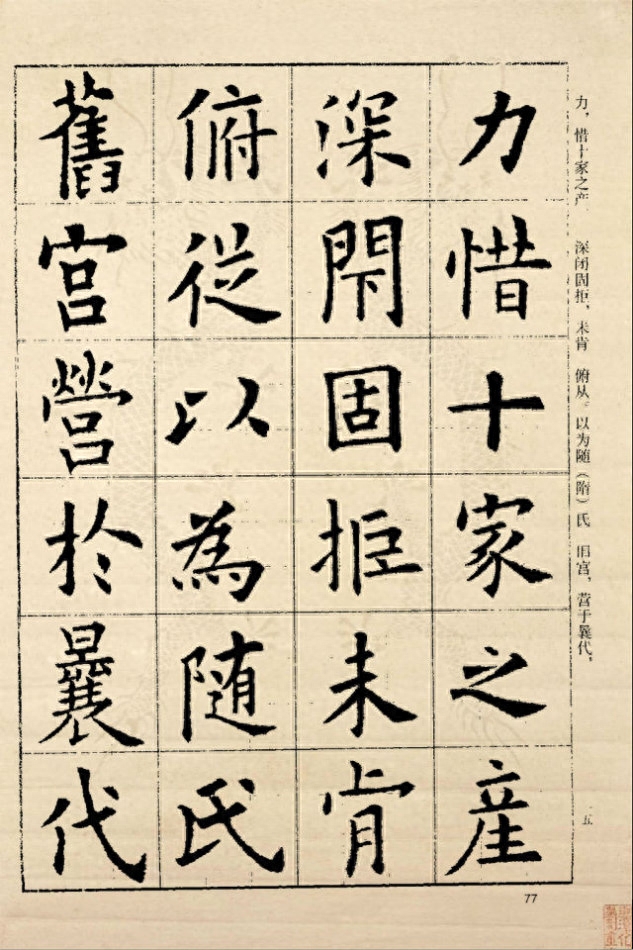 力惜十家之産
深閇固拒未肯
俯從以為随氏
舊宫營於曩代
力，惜十家之产 深闭固拒，未肯 俯从。以为随（隋）氏 旧宫，营于曩代，
五
77